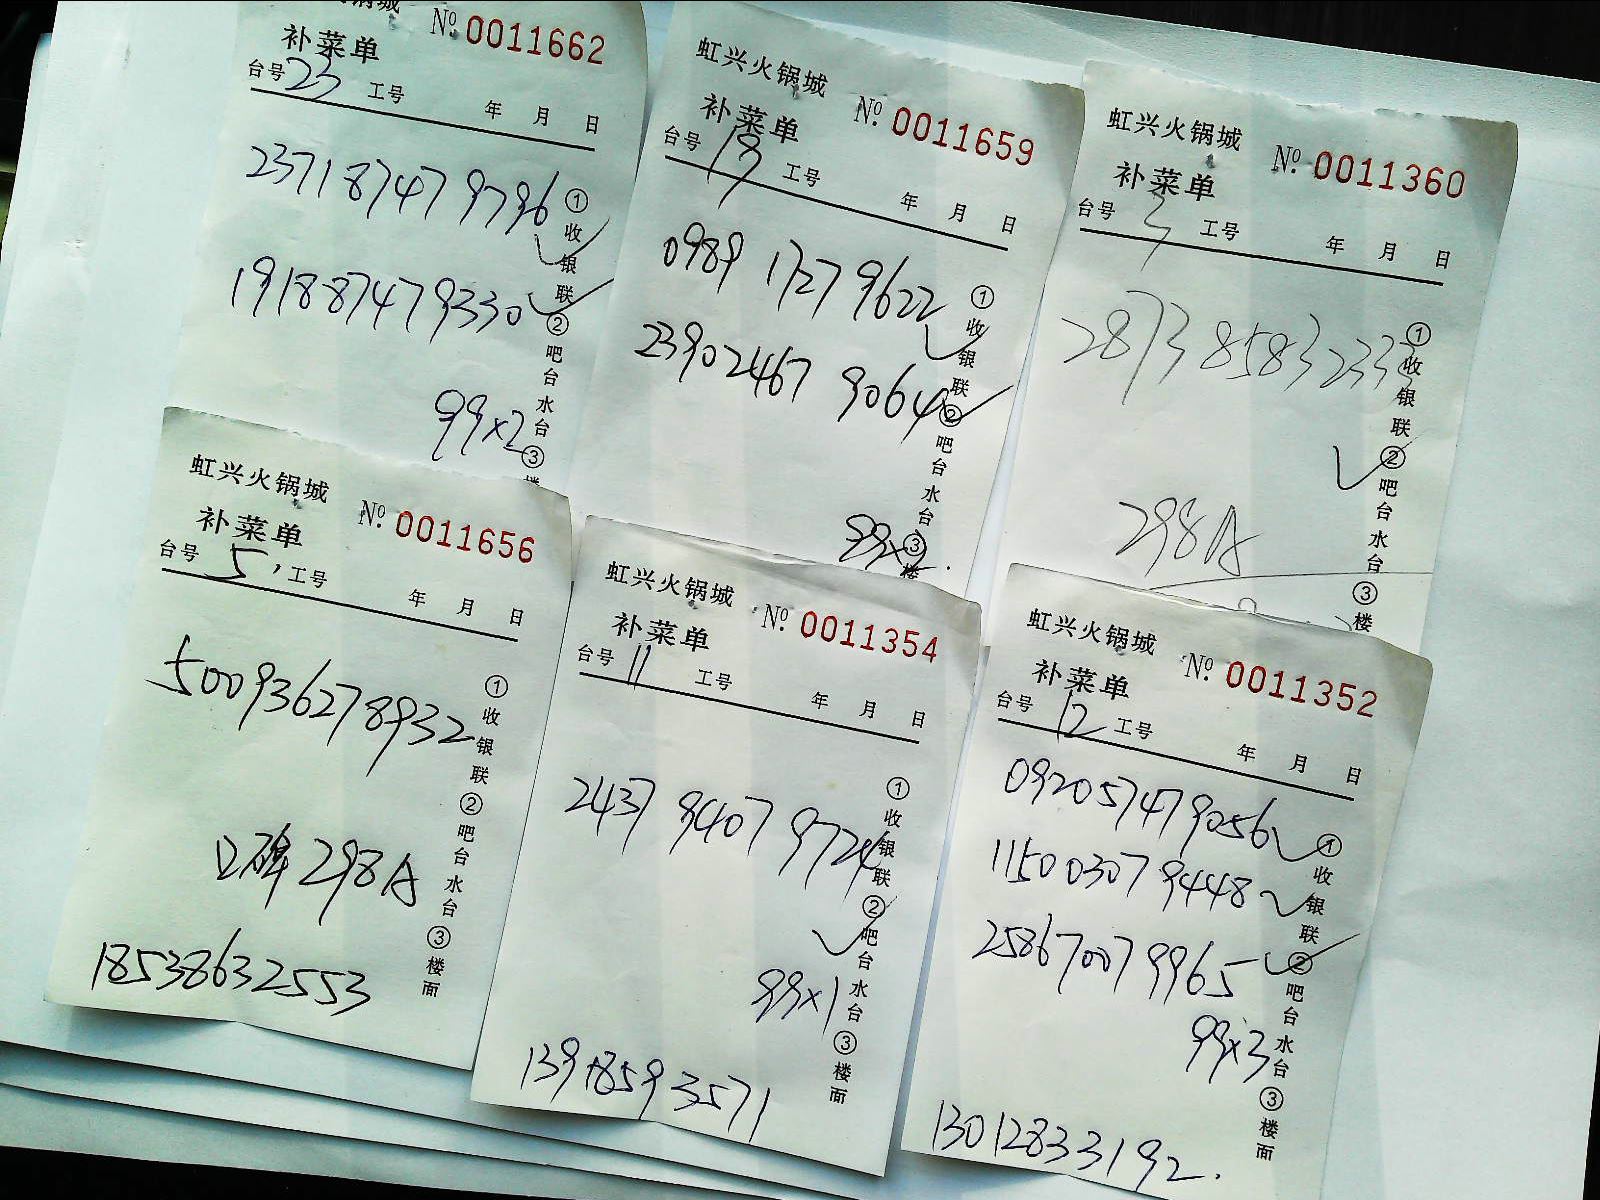 No. 0011662
补菜单
台号 23 工号 年 月 日
2371 8747 9796
1918 8747 9330
99×2
①收银联②吧台水台③
虹兴火锅城 No. 0011659
补菜单
台号 19 工号 年 月 日
0989 1727 9622
2390 2467 9064
99×2
①收银联②吧台水台③楼
虹兴火锅城 No. 0011360
补菜单
台号 3 工号 年 月 日
2873 8583 2333
298A
①收银联②吧台水台③楼
虹兴火锅城 No. 0011656
补菜单
台号 5, 工号 年 月 日
500936278932
口碑 298A
18538632553
①收银联②吧台水台③楼面
虹兴火锅城 No. 0011354
补菜单
台号 11 工号 年 月 日
2437 9407 9724
99×1
13918593571
①收银联②吧台水台③楼面
虹兴火锅城 No. 0011352
补菜单
台号 12 工号 年 月 日
0920 5747 9056
1150 0307 9448
2586 7007 9965
99×3
13012833192.
①收银联②吧台水台③楼面